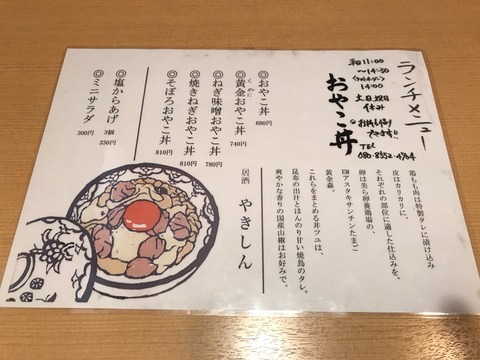 ランチメニュー
おやこ丼
平日11:00
〜14:30
(ラストオーダー)
14:00
土日祝日
休み
お持ち帰り
できます!!
TEL
080-8552-4764
鶏もも肉は特製タレに漬け込み
皮はカリカリに。
それぞれの部位に適した仕込みを。
卵は美ら卵養鶏場の、
EMアスタキサンチンたまご
黄金森。
これらをまとめる丼ツユは、
昆布の出汁とほんのり甘い焼鳥のタレ。
爽やかな香りの国産山椒はお好みで。
◎おやこ丼 680円
◎黄金おやこ丼 740円
◎ねぎ味噌おやこ丼 780円
◎焼きねぎおやこ丼 810円
◎そぼろおやこ丼 810円
◎塩からあげ 3個 330円
◎ミニサラダ 300円
居酒 やきしん